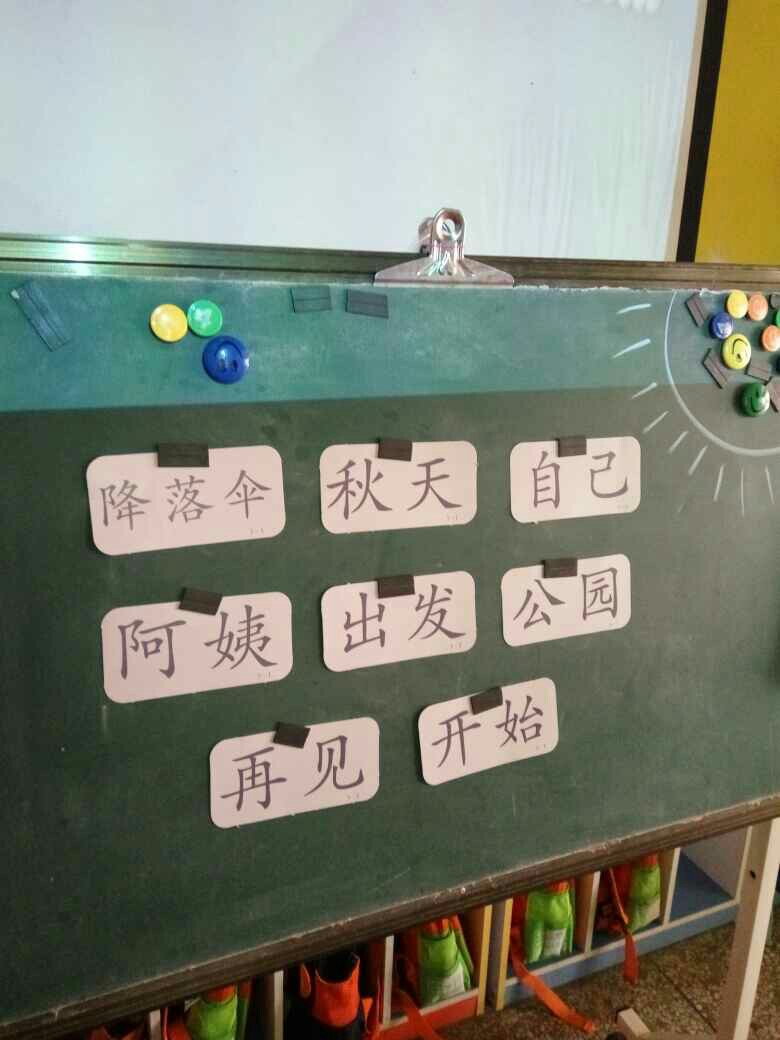 降落伞 秋天 自己
阿姨 出发 公园
再见 开始